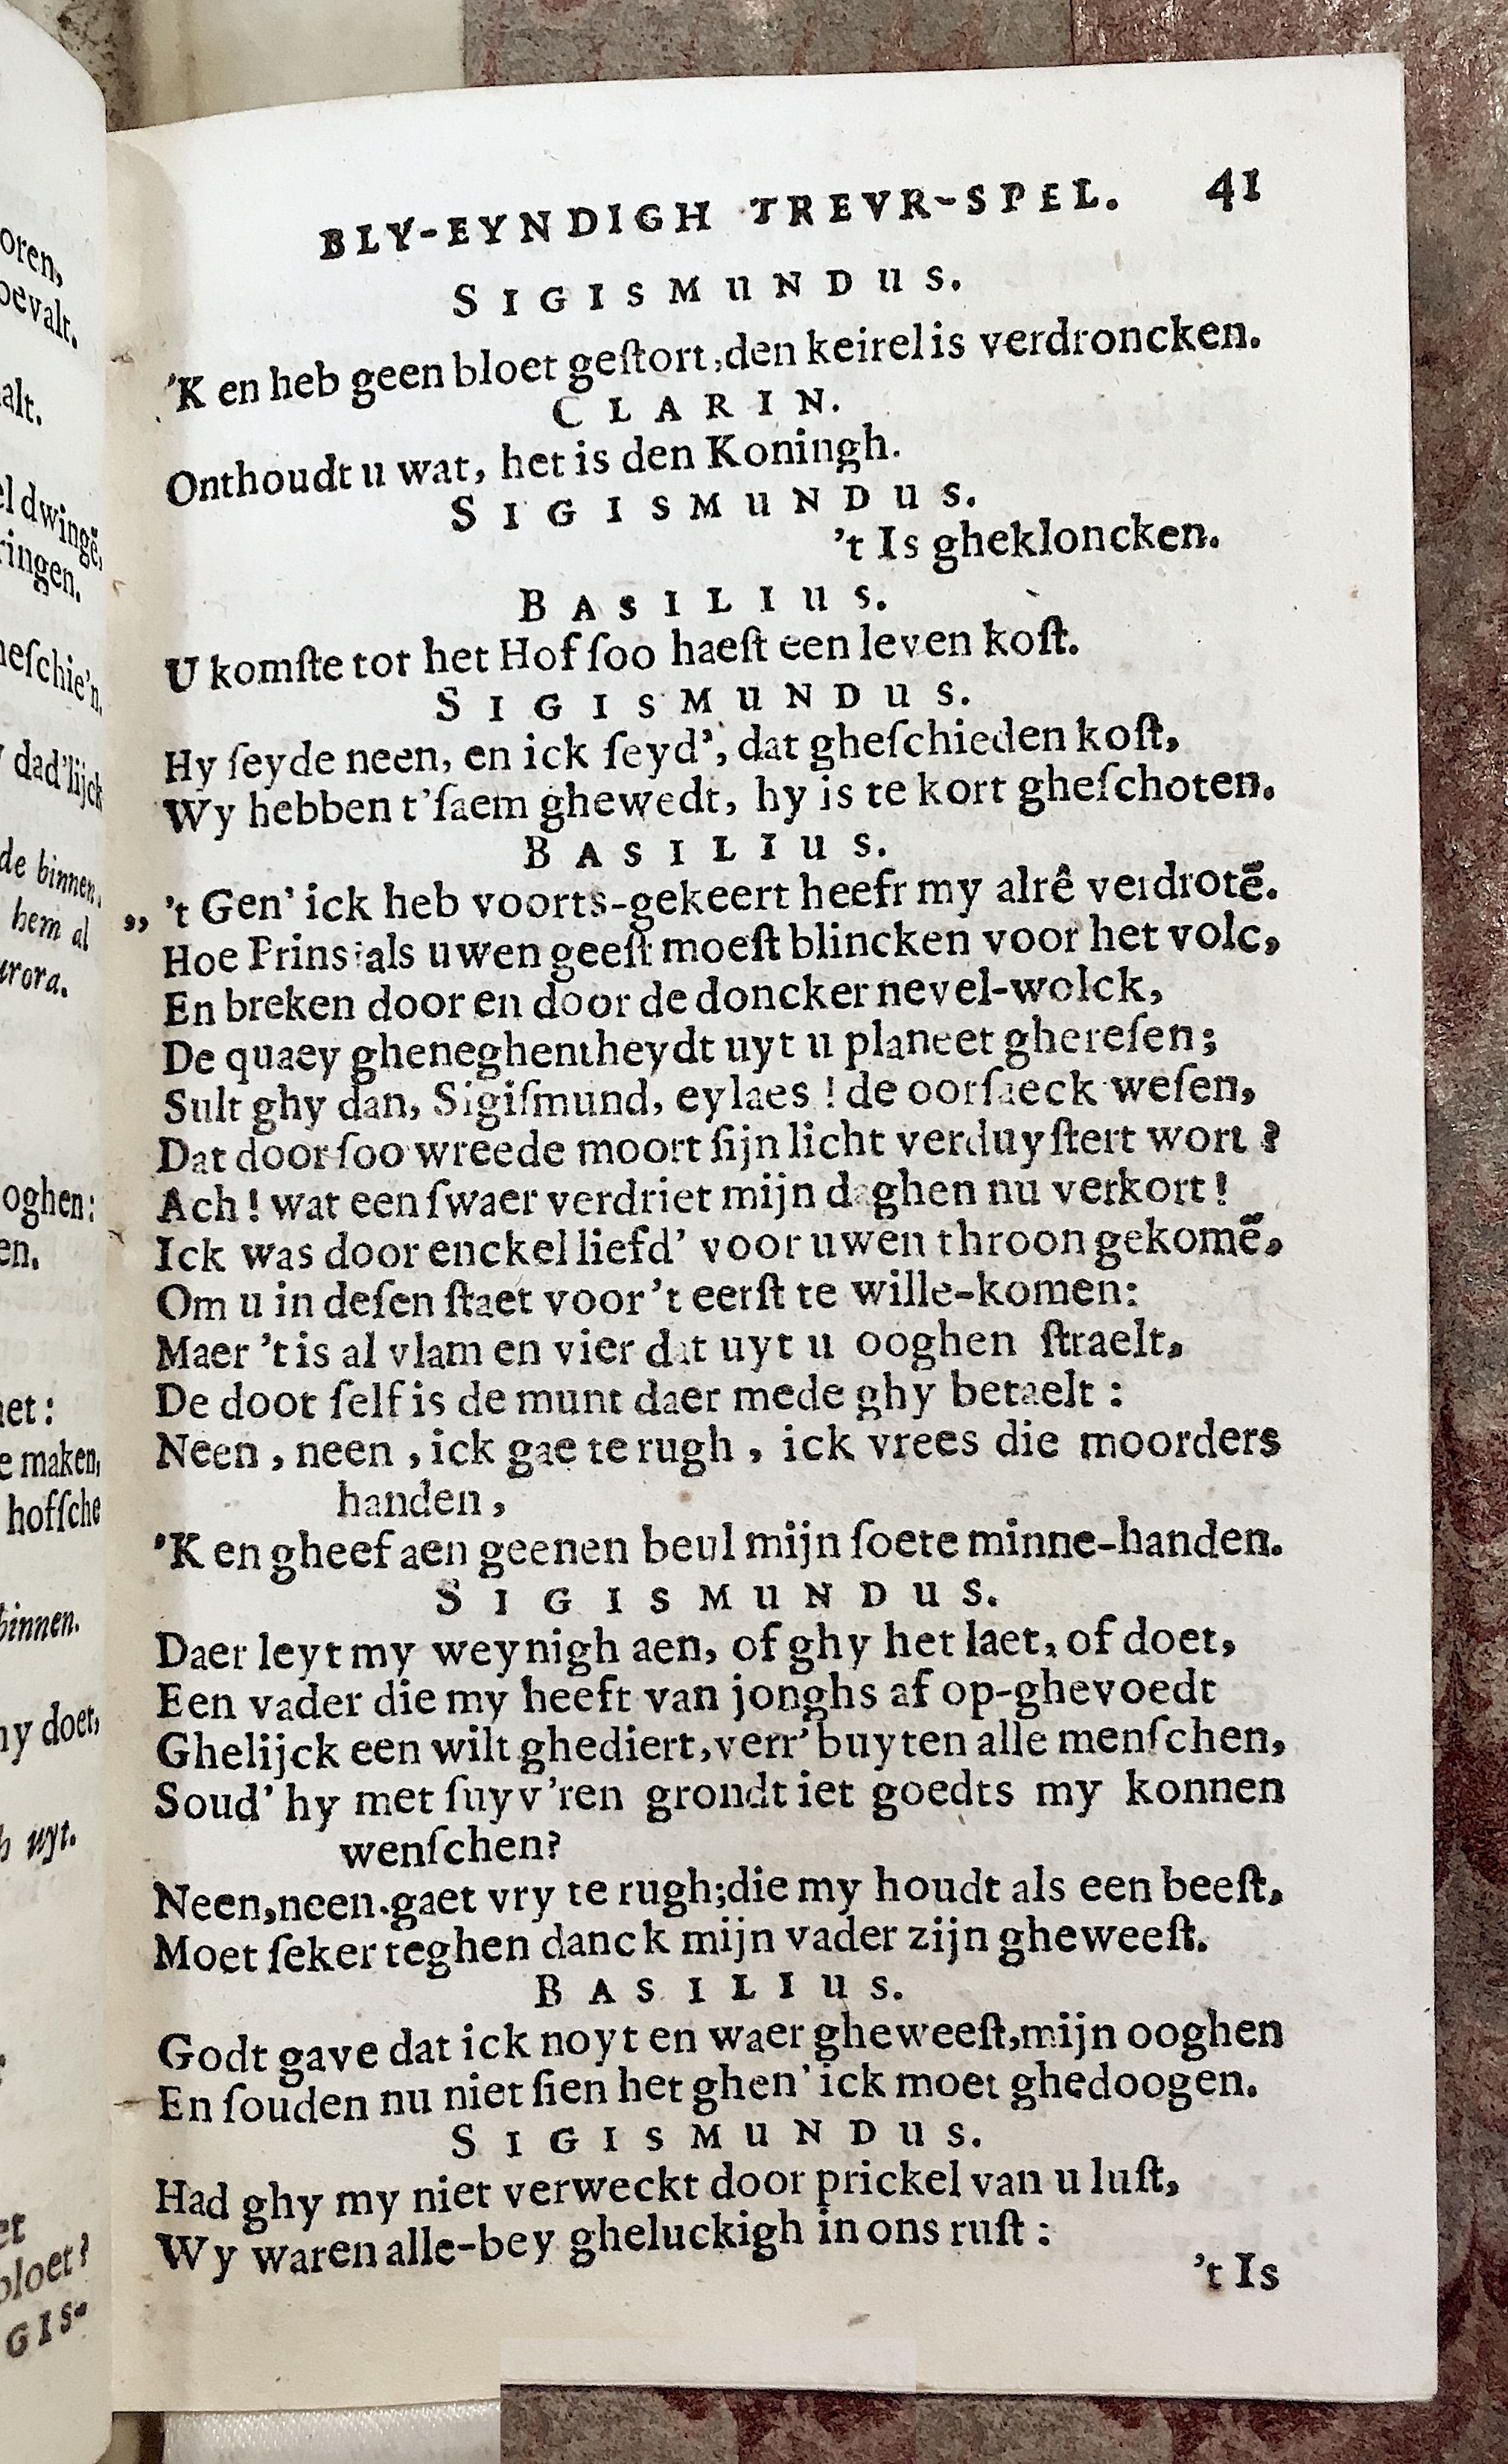 BLY-EYNDIGH TREVR-SPEL. 41
SIGISMUNDUS.
'K en heb geen bloet geſtort, den keirel is verdroncken.
CLARIN.
Onthoudt u wat, het is den Koningh.
SIGISMUNDUS.
't Is ghekloncken.
BASILIUS.
U komſte tot het Hof ſoo haeſt een leven koſt.
SIGISMUNDUS.
Hy ſeyde neen, en ick ſeyd', dat gheſchieden koſt,
Wy hebben t'ſaem ghewedt, hy is te kort gheſchoten.
BASILIUS.
,, 't Gen' ick heb voorts-gekeert heefr my alrê verdrotē.
Hoe Prins: als uwen geeſt moeſt blincken voor het volc,
En breken door en door de doncker nevel-wolck,
De quaey gheneghentheydt uyt u planeet ghereſen;
Sult ghy dan, Sigiſmund, eylaes ! de oorſaeck weſen,
Dat door ſoo wreede moort ſijn licht verduyſtert wort ?
Ach ! wat een ſwaer verdriet mijn daghen nu verkort !
Ick was door enckel liefd' voor uwen throon gekomē,
Om u in deſen ſtaet voor 't eerſt te wille-komen:
Maer 't is al vlam en vier dat uyt u ooghen ſtraelt,
De doot ſelf is de munt daer mede ghy betaelt :
Neen, neen, ick gae te rugh, ick vrees die moorders
handen,
'K en gheef aen geenen beul mijn ſoete minne-handen.
SIGISMUNDUS.
Daer leyt my weynigh aen, of ghy het laet, of doet,
Een vader die my heeft van jonghs af op-ghevoedt
Ghelijck een wilt ghediert, verr' buyten alle menſchen,
Soud' hy met ſuyv'ren grondt iet goedts my konnen
wenſchen?
Neen, neen. gaet vry te rugh; die my houdt als een beeſt,
Moet ſeker teghen danck mijn vader zijn gheweeſt.
BASILIUS.
Godt gave dat ick noyt en waer gheweeſt, mijn ooghen
En ſouden nu niet ſien het ghen' ick moet ghedoogen.
SIGISMUNDUS.
Had ghy my niet verweckt door prickel van u luſt,
Wy waren alle-bey gheluckigh in ons ruſt :
't Is